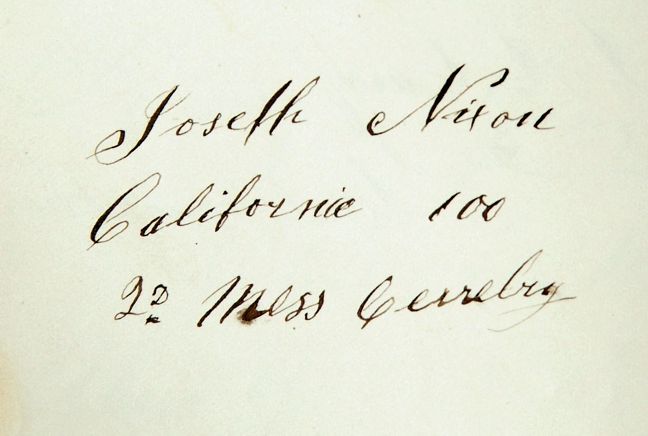 Joseth Nixon
California 100
2D Mess Cerrelry